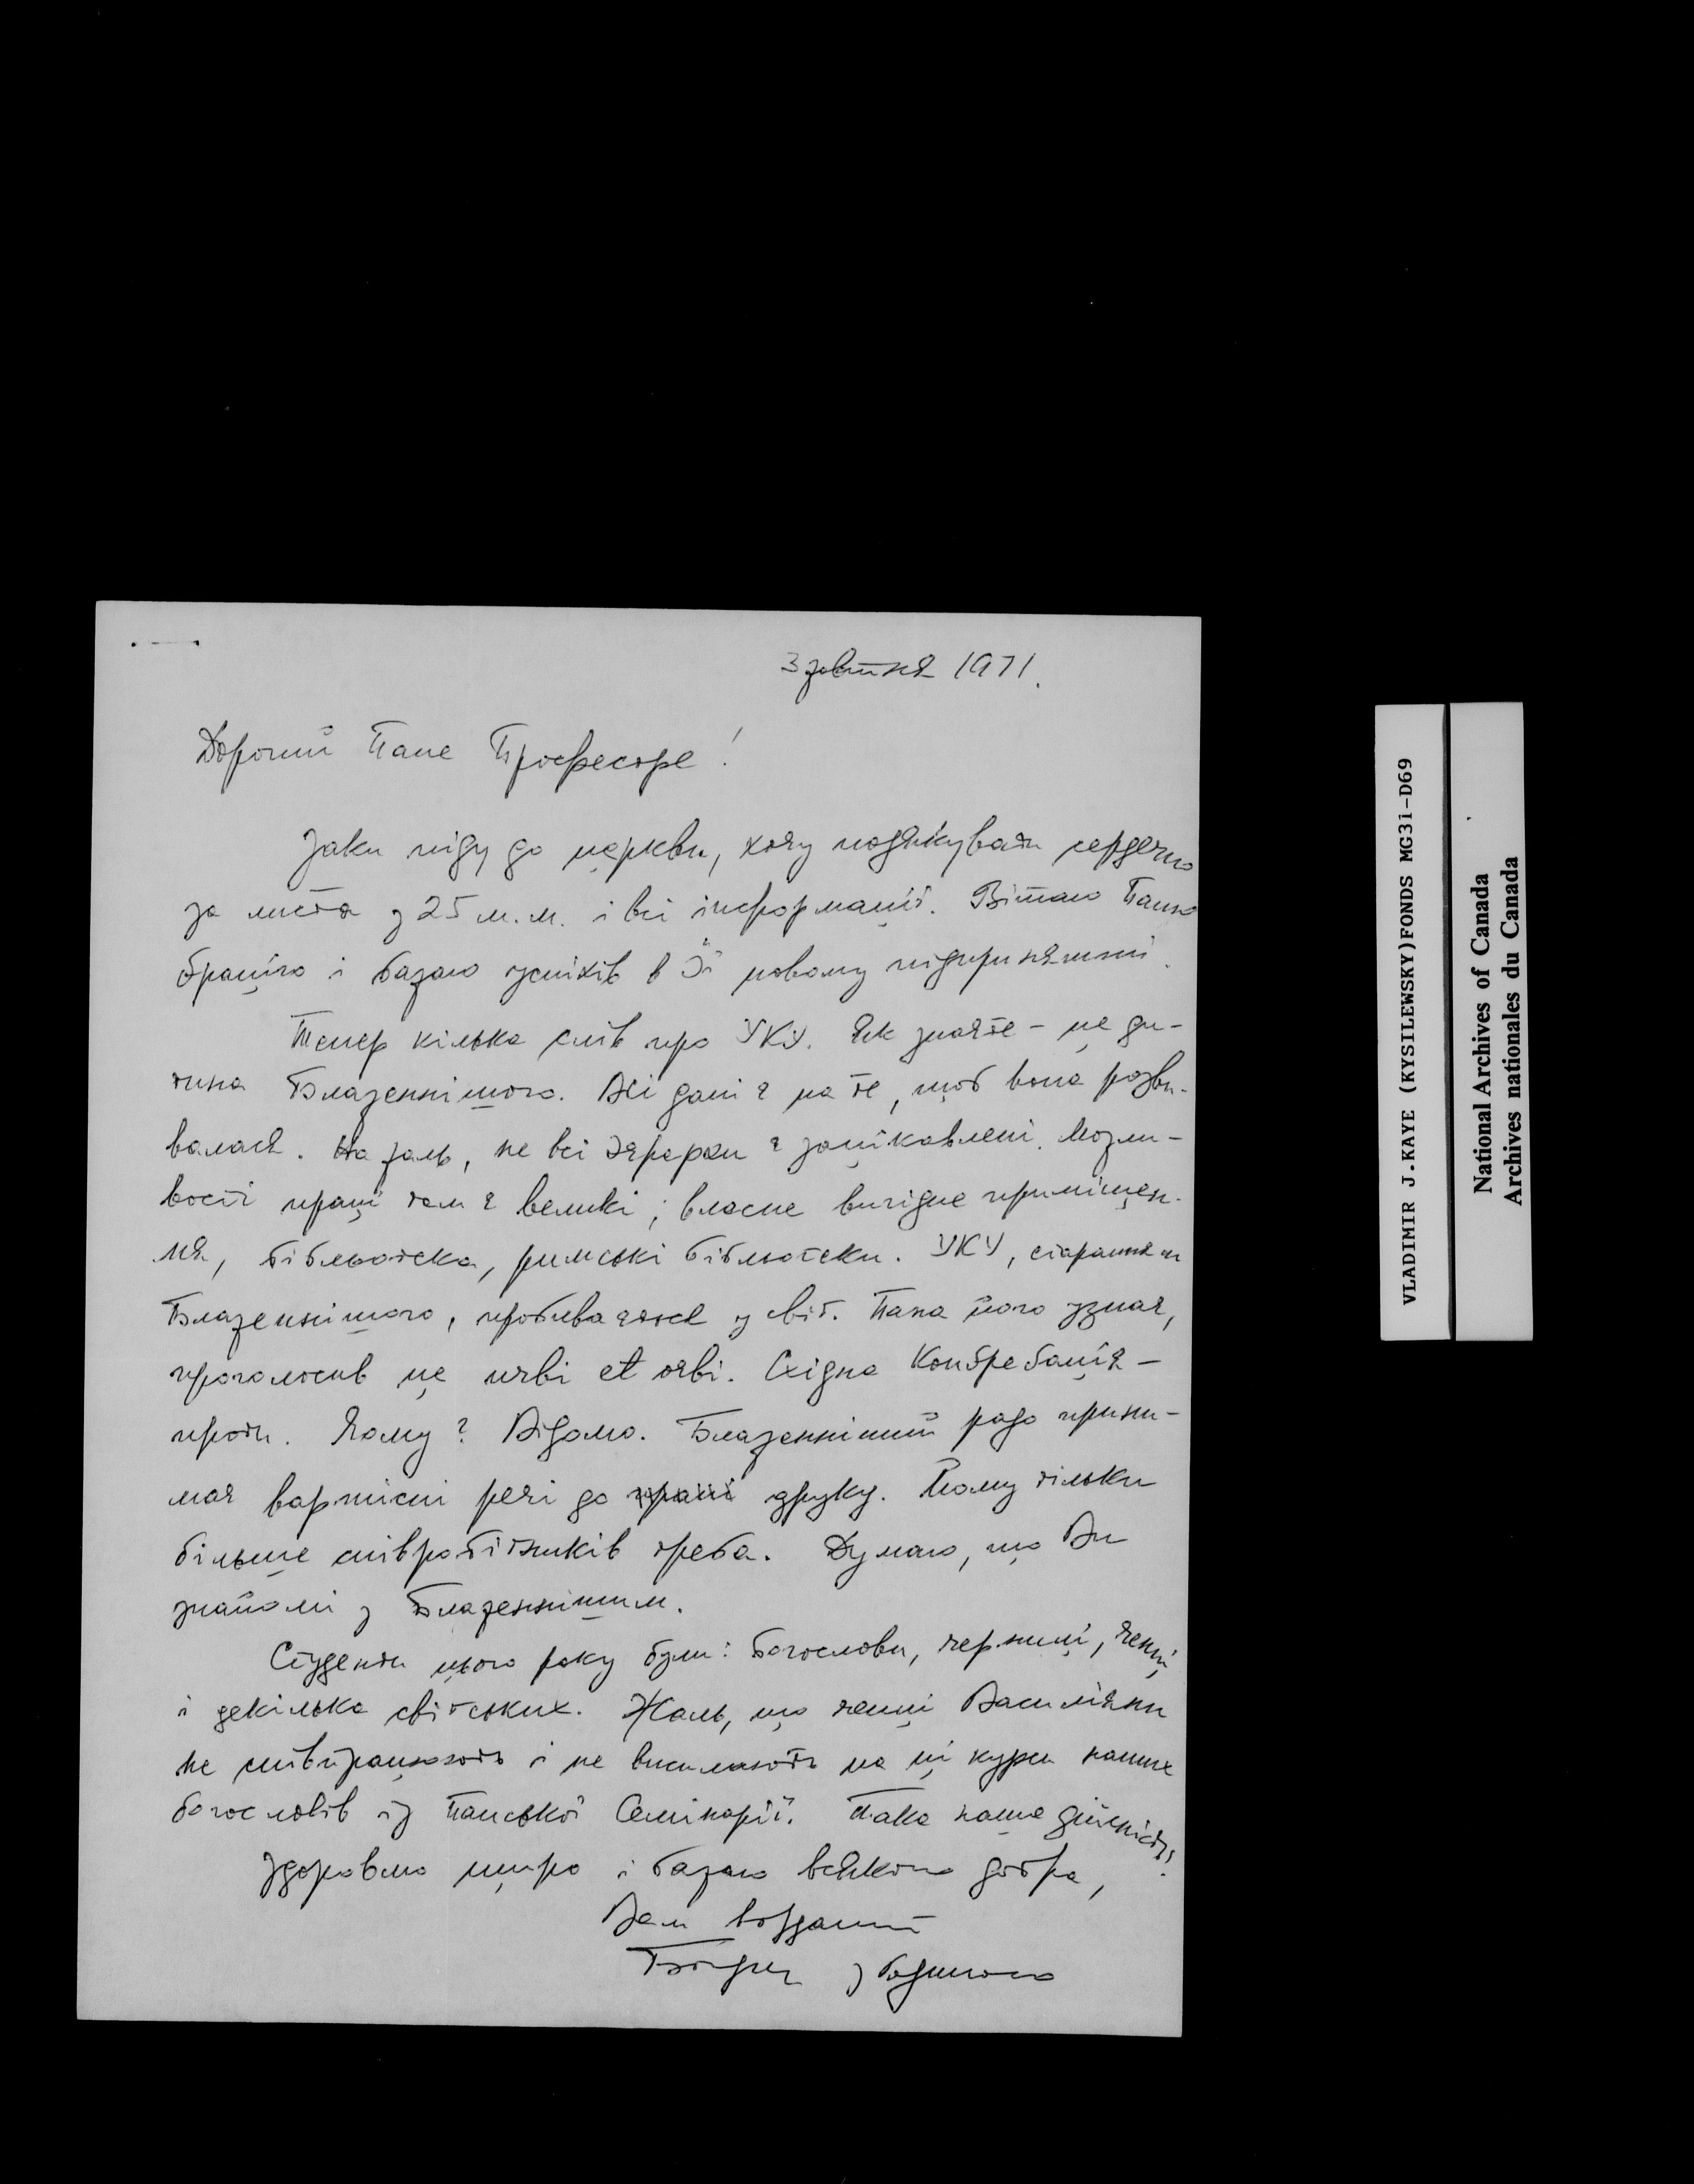 3 жовтня 1971.
Дорогий Пане Професоре!
Заки піду до церкви, хочу подякувати сердечно
за листа з 25 м.м. і всі інформації. Вітаю Паню
Грацію і бажаю успіхів в Її новому підпринятті.
Тепер кілька слів про УКУ. Як знаєте - це ди-
тина Блаженнішого. Всі дані є на те, щоб вона розви-
валася. На жаль, не всі єрархи є зацікавлені. Можли-
вості праці там є великі; власне вигідне приміщен-
ня, бібліотека, римські бібліотеки. УКУ, старанням
Блаженнішого, пробивається у світ. Папа його узнає,
проголосив це urbi et orbi. Східна Конґреґація -
проти. Чому? Відомо. Блаженніший радо прини-
має вартісні речі до праці друку. Йому тільки
більше співробітників треба. Думаю, що Ви
знайомі з Блаженнішим.
Студенти цього року були: богослови, черниці, ченці
і декілька світських. Жаль, що ченці Василіяни
не співпрацюють і не висилають на ці курси наших
богословів із Папської Семінарії. Така наша дійсність.
Здоровлю щиро і бажаю всякого добра,
Вам відданий
з родиною
VLADIMIR J.KAYE (KYSILEWSKY)FONDS MG31-D69
National Archives of Canada
Archives nationales du Canada